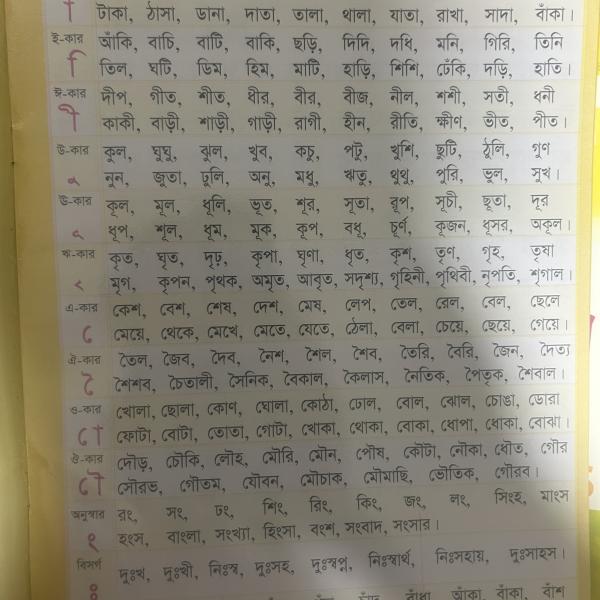 া টাকা, ঠাসা, ডানা, দাতা, তালা, থালা, যাতা, রাখা, সাদা, বাঁকা।
ই-কার আঁকি, বাচি, বাটি, বাকি, ছড়ি, দিদি, দধি, মনি, গিরি, তিনি
ি তিল, ঘটি, ডিম, হিম, মাটি, হাড়ি, শিশি, ঢেঁকি, দড়ি, হাতি।
ঈ-কার দীপ, গীত, শীত, ধীর, বীর, বীজ, নীল, শশী, সতী, ধনী
ী কাকী, বাড়ী, শাড়ী, গাড়ী, রাগী, হীন, রীতি, ক্ষীণ, ভীত, পীত।
উ-কার কুল, ঘুঘু, ঝুল, খুব, কচু, পটু, খুশি, ছুটি, ঠুলি, গুণ
ু নুন, জুতা, ঢুলি, অনু, মধু, ঋতু, থুথু, পুরি, ভুল, সুখ।
ঊ-কার কূল, মূল, ধূলি, ভূত, শূর, সূতা, রূপ, সূচী, ছূতা, দূর
ূ ধূপ, শূল, ধূম, মূক, কূপ, বধূ, চূর্ণ, কূজন, ধূসর, অকূল।
ঋ-কার কৃত, ঘৃত, দৃঢ়, কৃপা, ঘৃণা, ধৃত, কৃশ, তৃণ, গৃহ, তৃষা
ৃ মৃগ, কৃপন, পৃথক, অমৃত, আবৃত, সদৃশ্য, গৃহিনী, পৃথিবী, নৃপতি, শৃগাল।
এ-কার কেশ, বেশ, শেষ, দেশ, মেষ, লেপ, তেল, রেল, বেল, ছেলে
ে মেয়ে, থেকে, মেখে, মেতে, যেতে, ঠেলা, বেলা, চেয়ে, ছেয়ে, গেয়ে।
ঐ-কার তৈল, জৈব, দৈব, নৈশ, শৈল, শৈব, তৈরি, বৈরি, জৈন, দৈত্য
ৈ শৈশব, চৈতালী, সৈনিক, বৈকাল, কৈলাস, নৈতিক, পৈতৃক, শৈবাল।
ও-কার খোলা, ছোলা, কোণ, ঘোলা, কোঠা, ঢোল, বোল, ঝোল, চোঙা, ডোরা
ো ফোটা, বোটা, তোতা, গোটা, খোকা, থোকা, বোকা, ধোপা, ধোকা, বোঝা।
ঔ-কার দৌড়, চৌকি, লৌহ, মৌরি, মৌন, পৌষ, কৌটা, নৌকা, ধৌত, গৌর
ৌ সৌরভ, গৌতম, যৌবন, মৌচাক, মৌমাছি, ভৌতিক, গৌরব।
অনুস্বার রং, সং, ঢং, শিং, রিং, কিং, জং, লং, সিংহ, মাংস
ং হংস, বাংলা, সংখ্যা, হিংসা, বংশ, সংবাদ, সংসার।
বিসর্গ দুঃখ, দুঃখী, নিঃস্ব, দুঃসহ, দুঃস্বপ্ন, নিঃস্বার্থ, নিঃসহায়, দুঃসাহস।
ঃ
আঁকা, বাঁকা, বাঁশ